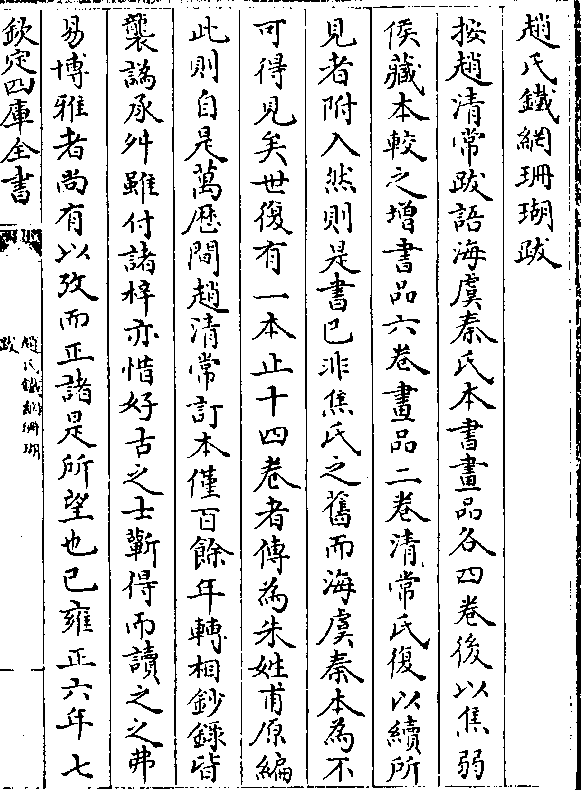 趙氏鐵網珊瑚跋
按趙清常跋語海虞秦氏本書畫品各四卷後以焦弱
侯藏本較之增書品六卷畫品二卷清常氏復以續所
見者附入然則是書已非焦氏之舊而海虞秦本為不
可得見矣世復有一本止十四卷者傳為朱姓甫原編
此則自是萬厯間趙清常訂本僅百餘年轉相鈔錄皆
襲譌承舛雖付諸梓亦惜好古之士蘄得而讀之之弗
易博雅者尚有以攷而正諸是所望也已雍正六年七
欽定四庫全書
趙氏鐵網珊瑚
跋